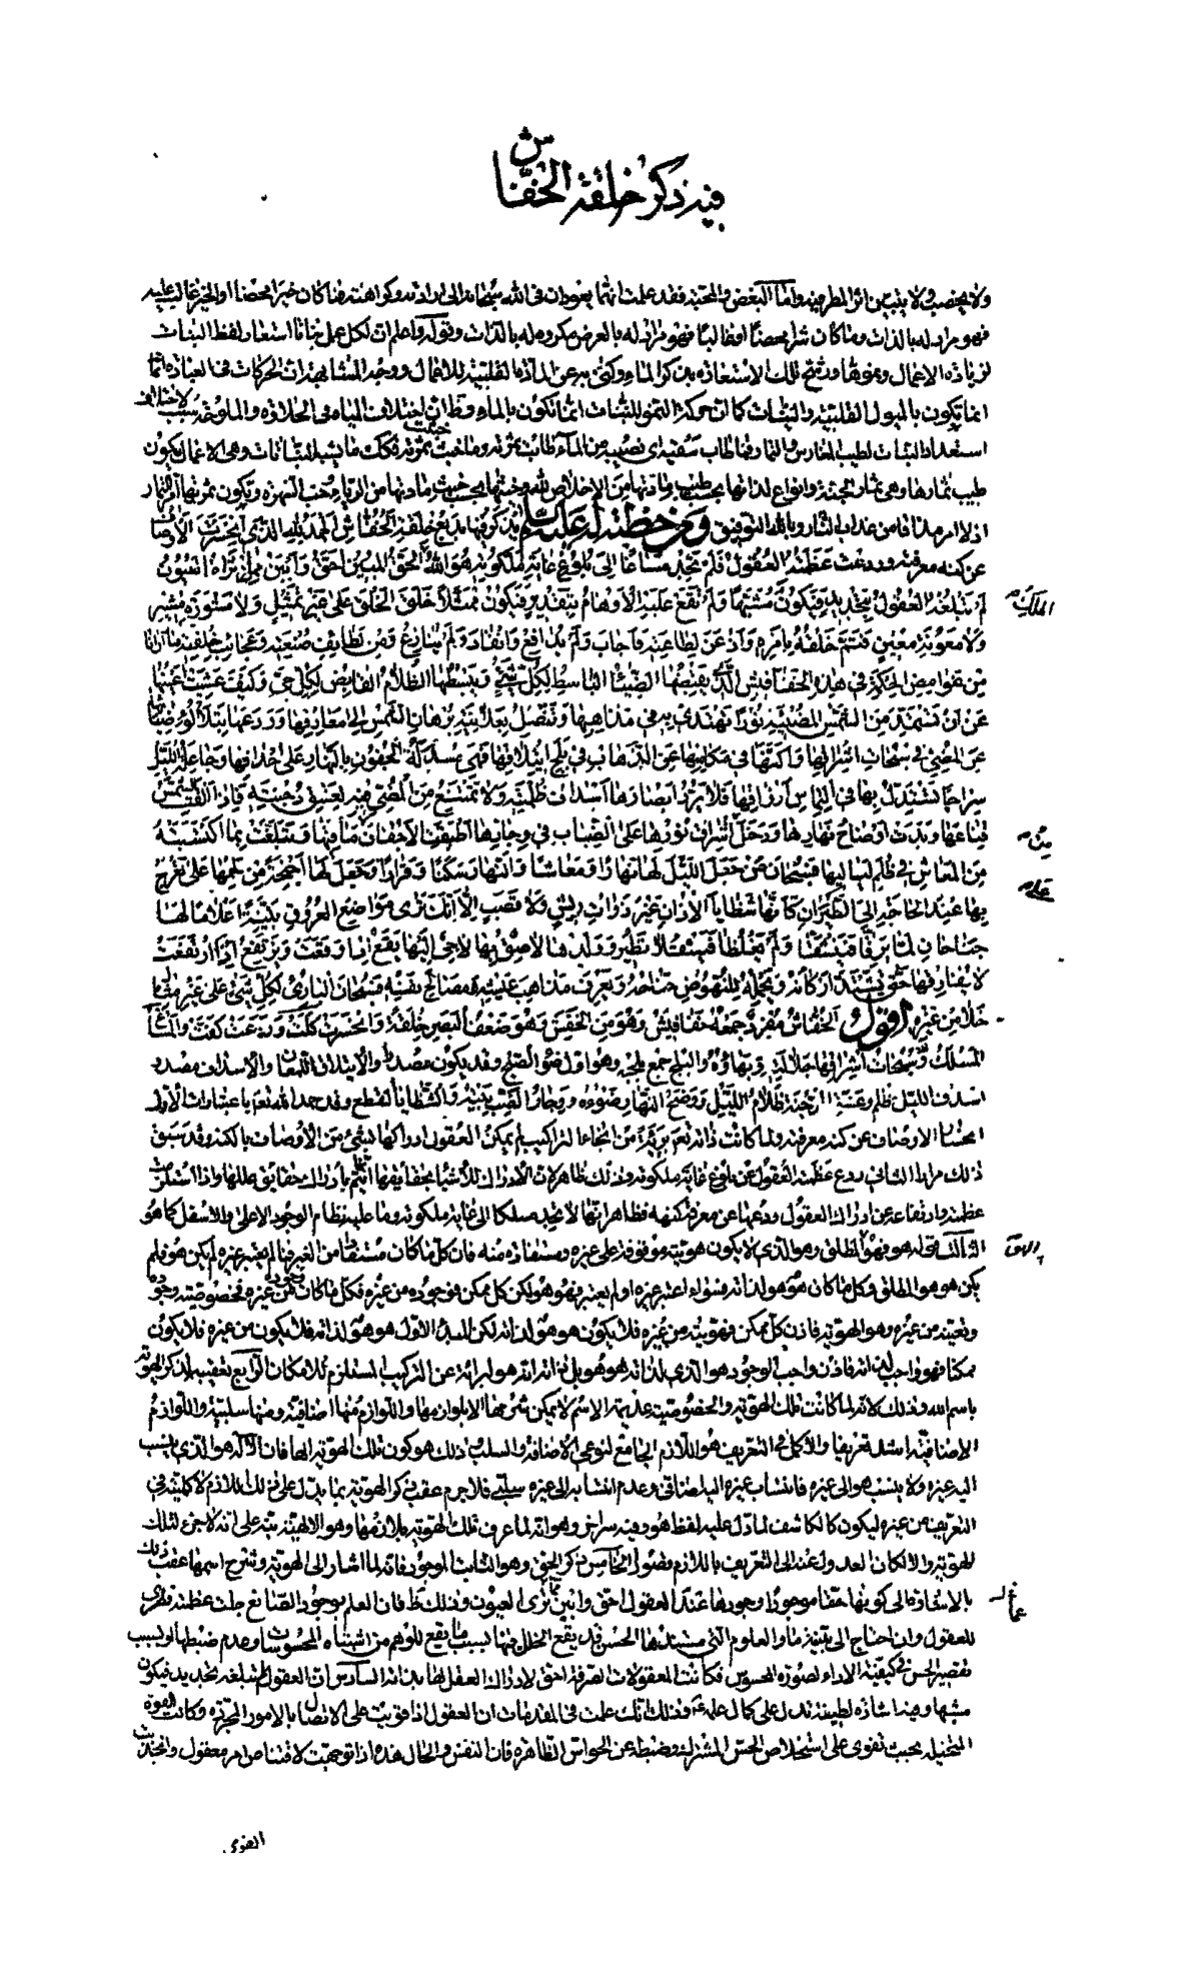 فيه ذكر خلقة الخفاش
ولا يخصب ولا يتبين اثر المطر فيه واما البغض والمحبة فقد علمت انهما يعودان فى الله سبحانه الى ارادته وكراهته فما كان خيرا محضا او الخير غالب عليه
فهو مراد له بالذات وما كان شرا محضا او غالبا فهو مراد له بالعرض مكروه له بالذات وقوله واعلم ان لكل عمل نباتا استعار لفظ النبات
لزيادة الاعمال ونموها ورشح تلك الاستعارة بذكر الماء وكنى به عن المادة القلبية للاعمال ووجه المشابهة ان الحركات فى العبادة
انما تكون بالميول القلبية والنيات كما ان حركة النمو للنبات انما تكون بالماء وظ ان اختلاف المياه فى الحلاوة والملوحة سبب لاختلاف
استعداد النبات لطيب المغارس والثمار فما طاب سقيه اى نصيبه من الماء طابت ثمرته وما خبث خبثت ثمرته فكذلك ما يشبه النبات وهى الاعمال يكون
طيب ثمارها وهى ثمار الجنة وانواع لذاتها بحسب طيب مادتها من الاخلاص لله وخبثها بحسب خبث مادتها من الرياء وحب الشهرة وتكون ثمرتها امر الثمار
اذ لا امر مذاقا من عذاب النار وبالله التوفيق ومن خطبة له عليه السلم يذكر فيها بديع خلقة الخفاش الحمد لله الذى انحسرت الاوصاف
عن كنه معرفته وردعت عظمته العقول فلم تجد مساغا الى بلوغ غاية ملكوته هو الله الحق المبين احق وابين مما تراه العيون
لم تبلغه العقول بتحديد فيكون مشبها ولم تقع عليه الاوهام بتقدير فيكون ممثلا خلق الخلق على غير تمثيل ولا مشورة مشير
الملك
ولا معونة معين فتم خلقه بامره واذعن لطاعته فاجاب ولم يدافع وانقاد ولم ينازع ومن لطائف صنعته وعجائب خلقته ما ارانا
من غوامض الحكمة فى هذه الخفافيش التى يقبضها الضياء الباسط لكل شئ ويبسطها الظلام القابض لكل حى وكيف عشيت اعينها
عن ان تستمد من الشمس المضيئة نورا تهتدى به فى مذاهبها وتتصل بعلانية برهان الشمس الى معارفها وردعها بتلألؤ ضيائها
عن المضى فى سبحات اشراقها واكنها فى مكامنها عن الذهاب فى بلج ائتلاقها فهى مسدلة الجفون بالنهار على حداقها وجاعلة الليل
سراجا تستدل به فى التماس ارزاقها فلا يرد ابصارها اسداف ظلمته ولا تمتنع من المضى فيه لغسق دجنته فاذا القت الشمس
قناعها وبدت اوضاح نهارها ودخل اشراق نورها على الضباب فى وجارها اطبقت الاجفان على مآقيها وتبلغت بما اكتسبته
من المعاش فى ظلم لياليها فسبحان من جعل الليل لها نهارا ومعاشا والنهار سكنا وقرارا وجعل لها اجنحة من لحمها تعرج
بها عند الحاجة الى الطيران كانها شظايا الاذان غير ذوات ريش ولا قصب الا انك ترى مواضع العروق بينة اعلاما لها
جناحان لما يرقا فينشقا ولم يغلظا فيثقلا تطير وولدها لاصق بها لاجئ اليها يقع اذا وقعت ويرتفع اذا ارتفعت
لا يفارقها حتى تشتد اركانه ويحمله للنهوض جناحه ويعرف مذاهب عيشه ومصالح نفسه فسبحان البارئ لكل شئ على غير مثال
خلا من غيره اقول الخفاش مفرد جمعه خفافيش وهو من الخفش وهو ضعف البصر خلقة وانحسرت كلت وردعت كفت والمساغ
المسلك وسبحات اشراقها جلاله وبهاؤه والبلج جمع بلجة وهو اول ضوء الصبح وقد يكون مصدرا والائتلاق اللمعان والاسداف مصدر
اسدف الليل اظلم وغسق الدجنة ظلام الليل ووضح النهار ضوءه ووجار الضب بيته والشظايا القطع وقد حمد الله تعالى باعتبارات الاول
انحسار الاوصاف عن كنه معرفته ولما كانت ذاته تعالى بريئة من انحاء التراكيب لم يمكن العقول ادراكها بشئ من الاوصاف بالكنه وقد سبق
ذلك مرارا الثانى ردع عظمته العقول عن بلوغ غاية ملكوته وذلك ظاهر لان الادراك للاشياء بحقايقها انما يتم بادراك حقايق عللها واذا استلزمت
عظمته وارتفاعه عن ادراك العقول ردعها عن معرفة كنهه فظاهر انها لا تجد مسلكا الى غاية ملكوته وما عليه نظام الوجود الاعلى والاسفل كما هو
الثالث قوله هو فهو المطلق وهو الذى لا يكون هويته موقوفة على غيره ومستفادة منه فان كل ما كان مستفادا من الغير فما لم يعتبر غيره لم يكن هو فلم
يكن هو هو المطلق وكل ما كان هو هو لذاته فسواء اعتبر غيره او لم يعتبر فهو هو لكن كل ممكن فوجوده من غيره فكل ما كان وجوده من غيره فخصوصية وجوده
وتعينه من غيره وهو الهوية فاذن كل ممكن فهويته من غيره فلا يكون هو هو لذاته لكن المبدء الاول هو هو لذاته فلا يكون من غيره فلا يكون
ممكنا فهو واجب لذاته فاذن واجب الوجود هو الذى لذاته هو هو بل ذاته انه هو لبرائته عن التركيب المستلزم للامكان الرابع تعقيبه لذكر الهوية
باسم الله وذلك لانه لما كانت تلك الهوية والخصوصية عديمة الاسم لا يمكن شرحها الا بلوازمها واللوازم منها اضافية ومنها سلبية واللوازم
الاضافية اشد تعريفا والاكمل فى التعريف هو اللازم الجامع لنوعى الاضافة والسلب وذلك هو كون تلك الهوية الها فان الاله هو الذى ينسب
اليه غيره ولا ينسب هو الى غيره فانتساب غيره اليه اضافى وعدم انتسابه الى غيره سلبى فلا جرم عقب ذكر الهوية بما يدل على ذلك اللازم لاكمليته فى
التعريف من غيره ليكون كالكاشف لما دل عليه لفظ هو وفيه سر اخر وهو انه لما عرف تلك الهوية بلازمها وهو الالهية نبه على انه لا جزء لتلك
الهوية والا لكان العدول عنه الى التعريف باللازم قصورا الخامس ذكر الحق وهو الثابت الموجود فانه لما اشار الى الهوية وشرح اسمها عقب ذلك
بالاشارة الى كونها حقا موجودا وجودها عند العقول احق وابين مما ترى العيون وذلك ظ فان العلم بوجود الصانع جلت عظمته فطرى
للعقول وان احتاج الى تنبيه ما والعلوم التى مستندها الحس قد يقع الخلل فيها بسبب ما يقع للوهم من اشتباه المحسوسات وعدم ضبطها او بسبب
تقصير الحس فى كيفية الاداء لصورة المحسوس فكانت المعقولات الصرفة احق لادراك العقل لها بذاته السادس ان العقول لم تبلغه بتحديد فيكون
مشبها وفيه اشارة لطيفة تدل على كمال علمه وذلك انك علمت فى المقدمات ان العقول اذا قويت على الاتصال بالامور المجردة وكانت القوة
المتخيلة بحيث تقوى على استخلاص الحس المشترك وضبطه عن الحواس الظاهرة فان النفس والحال هذه اذا توجهت لاقتناص امر معقول وانجذبت
القوى